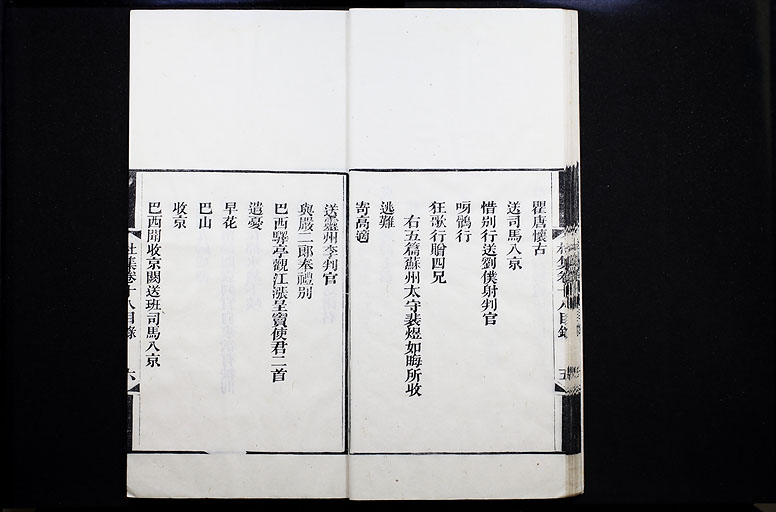 瞿唐懷古
送司馬入京
惜別行送劉僕射判官
呀鶻行
狂歌行贈四兄
右五篇蘇州太守裴煜如晦所收
逃難
寄高適
送靈州李判官
與嚴二郎奉禮別
巴西驛亭觀江漲呈竇使君二首
遣憂
早花
巴山
收京
巴西聞收京闕送班司馬入京
杜集卷十八目錄
六